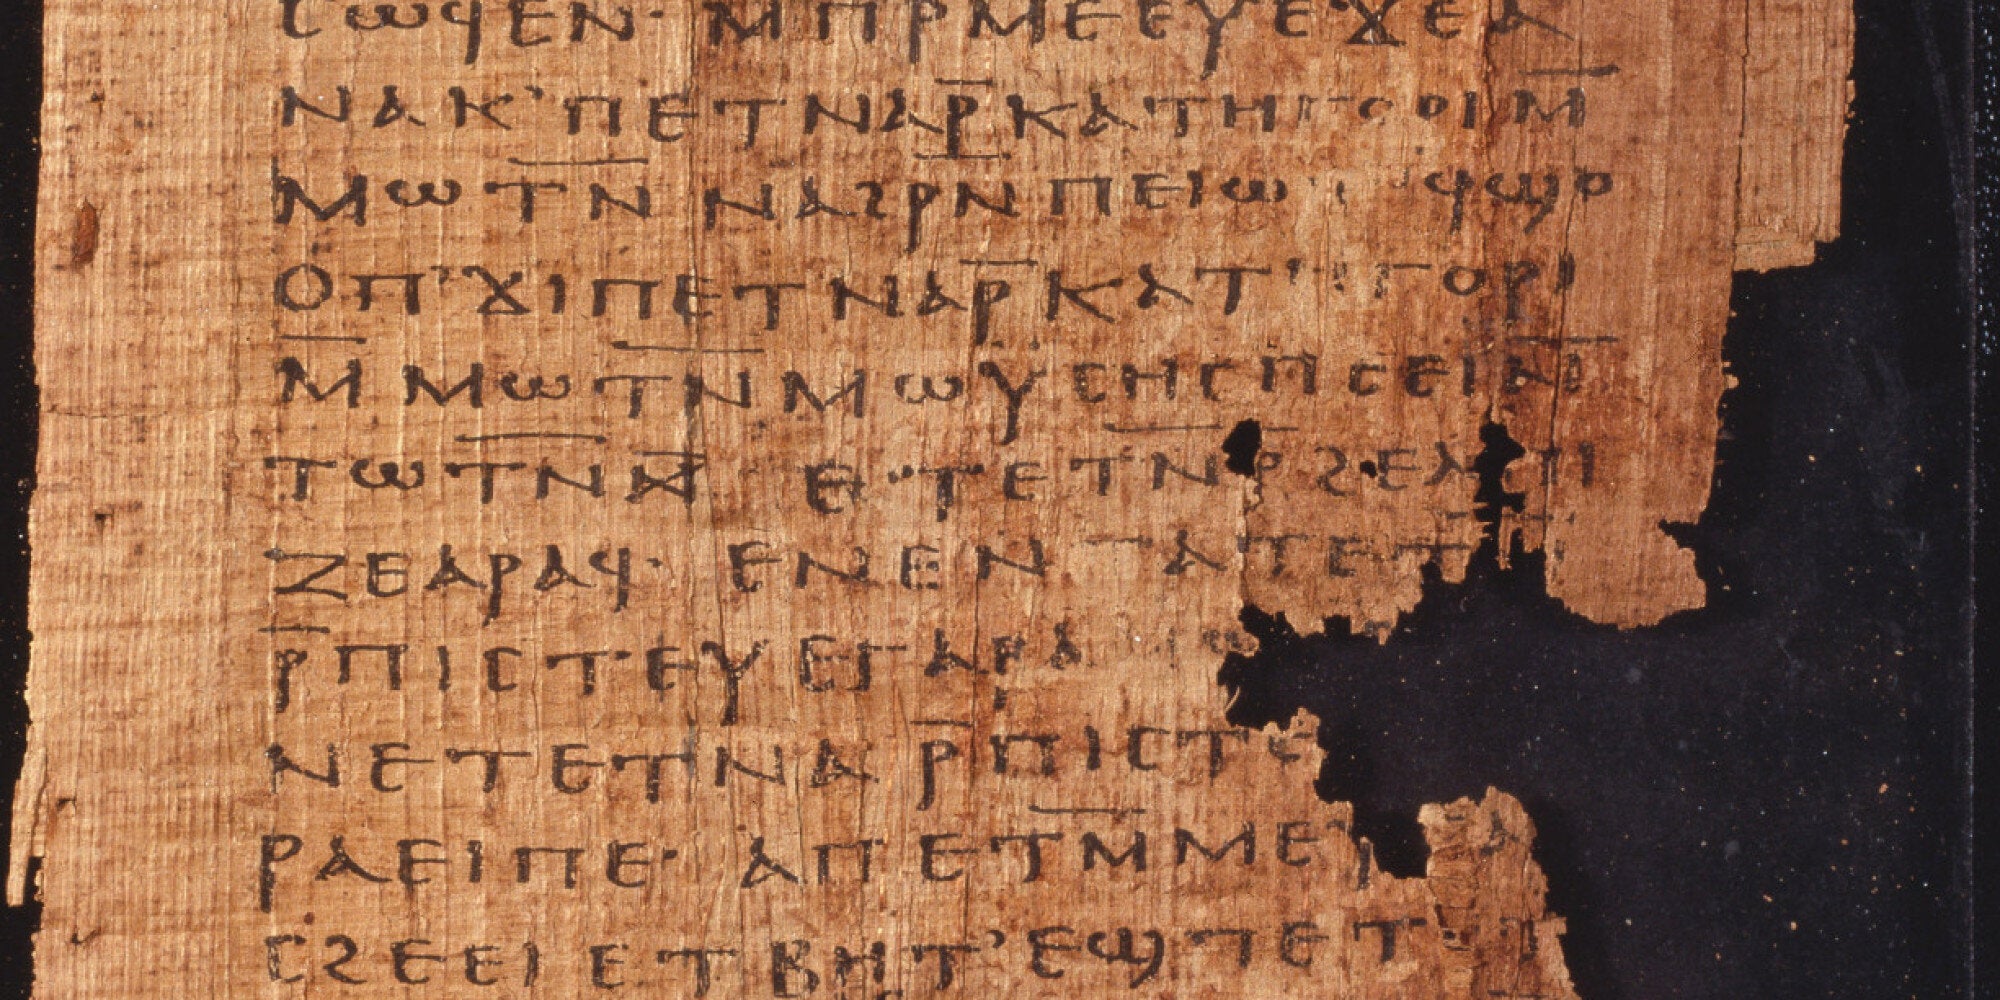 ⲥⲱϥⲉⲛ· ⲙⲡⲣⲙⲉⲉⲩⲉ ϫⲉ ⲁ
ⲛⲁⲕ’ ⲡⲉⲧⲛⲁⲣ̅ⲕⲁⲧⲏⲅⲟⲣⲓ ⲙ̅
ⲙⲱⲧⲛ̅ ⲛⲁϩⲣⲛ̅ ⲡⲉⲓⲱⲧ’ ϥϣⲟ
ⲟⲡ’ ϫⲓ ⲡⲉⲧⲛⲁⲣ̅ⲕⲁⲧⲏⲅⲟⲣⲓ
ⲙ̅ⲙⲱⲧⲛ̅ ⲙⲱⲩⲥⲏⲥ ⲡⲉⲉⲓ ⲛ̅
ⲧⲱⲧⲛ̅ ⲉⲧⲉⲧⲛ̅ⲣ̅ϩⲉⲗⲡⲓ
ⲍⲉ ⲁⲣⲁϥ· ⲉⲛⲉⲛⲧⲁⲧⲉⲧ
ⲣ̅ⲡⲓⲥⲧⲉⲩⲉ ⲅⲁⲣ ⲁ
ⲛⲉⲧⲉⲧⲛⲁⲣ̅ⲡⲓⲥⲧⲉ
ⲣⲁⲉⲓ ⲡⲉ· ⲁⲡⲉⲧⲙ̅ⲙⲉⲩ
ⲥϩⲉⲉⲓ ⲉⲧⲃⲏⲧ’ ⲉϣⲡⲉⲧ